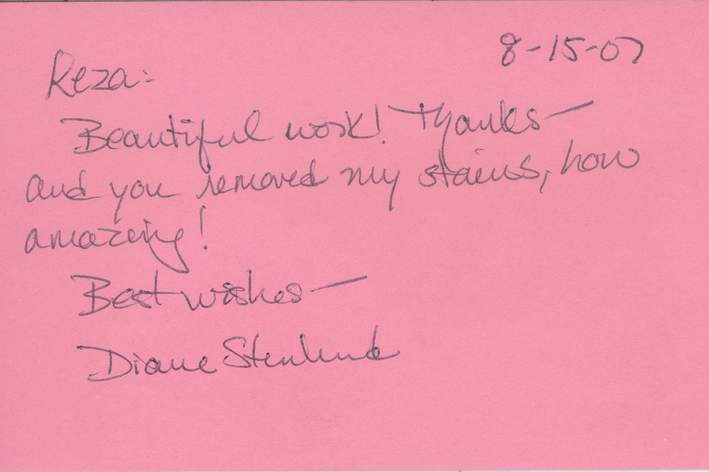 8-15-07
Reza:
Beautiful work! Thanks—
and you removed my stains, how
amazing!
Best wishes—
Diane Stenlund